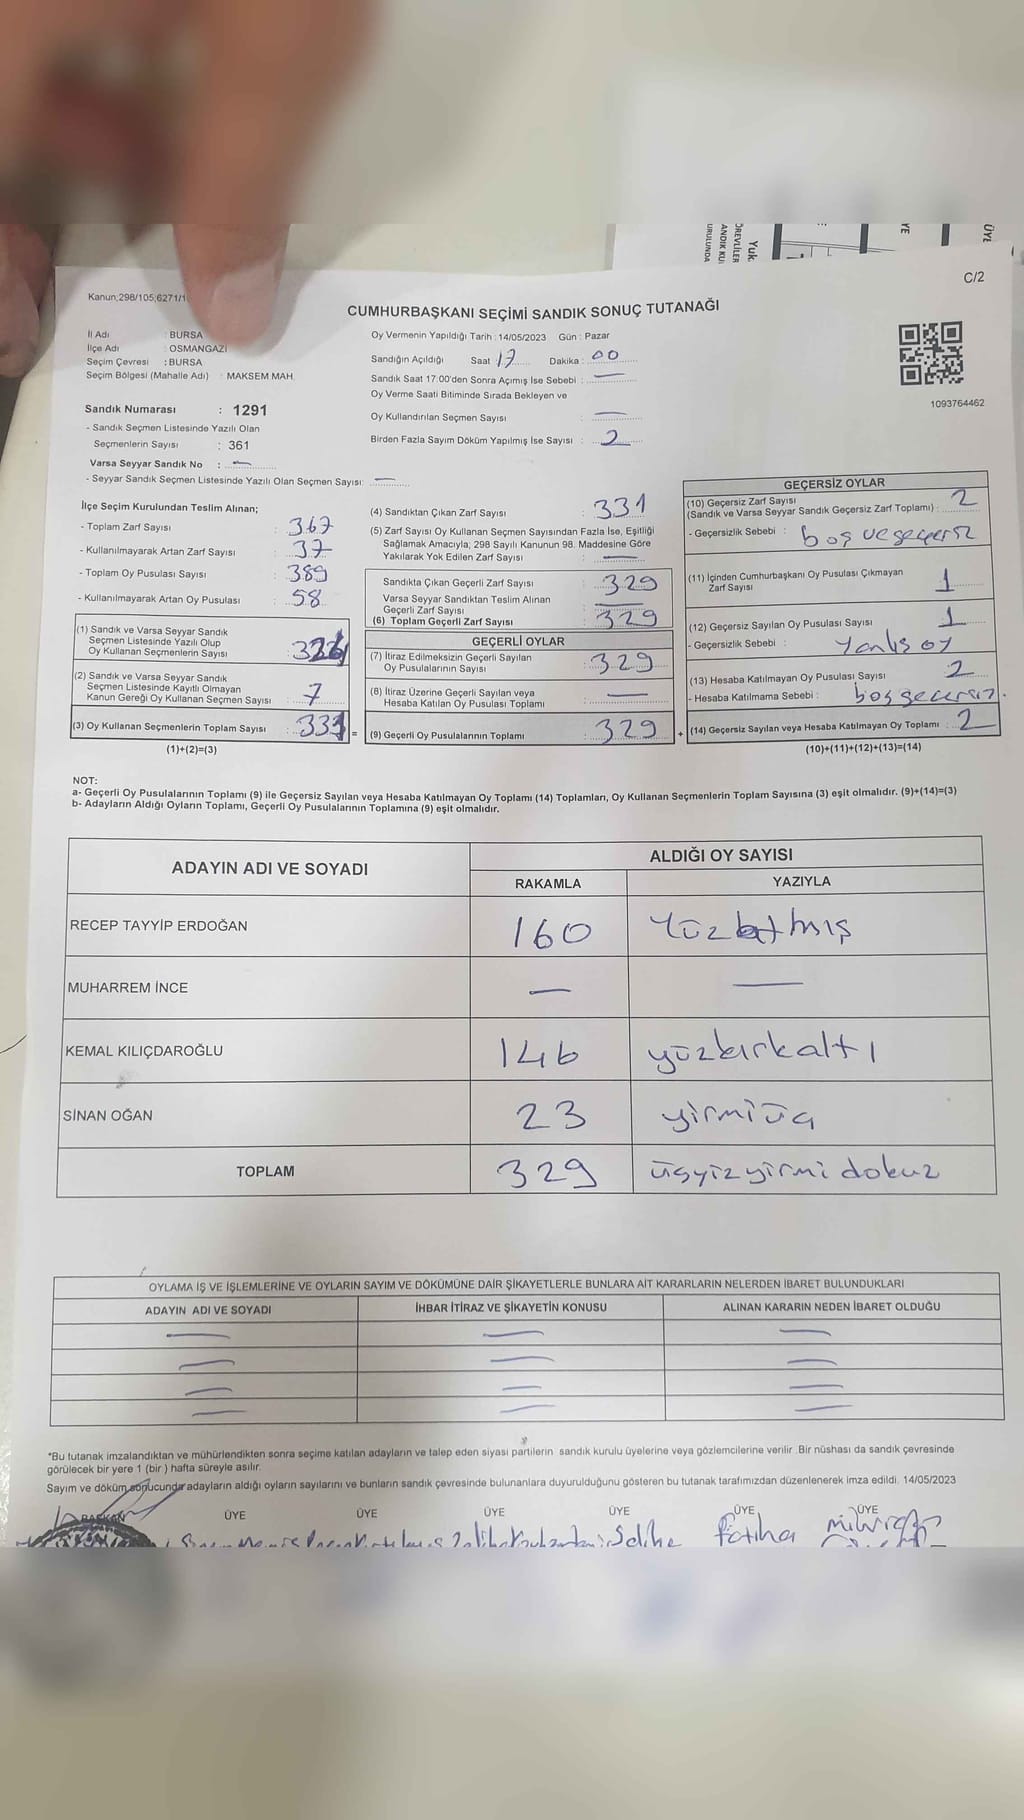 Yuk
C/2
Kanun;298/105;6271/1
CUMHURBAŞKANI SEÇİMİ SANDIK SONUÇ TUTANAĞI
İl Adı : BURSA
İlçe Adı : OSMANGAZİ
Seçim Çevresi : BURSA
Seçim Bölgesi (Mahalle Adı) : MAKSEM MAH.
Sandık Numarası : 1291
- Sandık Seçmen Listesinde Yazılı Olan
Seçmenlerin Sayısı : 361
Varsa Seyyar Sandık No : —
- Seyyar Sandık Seçmen Listesinde Yazılı Olan Seçmen Sayısı: —
Oy Vermenin Yapıldığı Tarih : 14/05/2023 Gün : Pazar
Sandığın Açıldığı Saat 17 Dakika : 00
Sandık Saat 17:00'den Sonra Açımış İse Sebebi : —
Oy Verme Saati Bitiminde Sırada Bekleyen ve
Oy Kullandırılan Seçmen Sayısı : —
Birden Fazla Sayım Döküm Yapılmış İse Sayısı : 2
1093764462
İlçe Seçim Kurulundan Teslim Alınan;
- Toplam Zarf Sayısı : 367
- Kullanılmayarak Artan Zarf Sayısı : 37
- Toplam Oy Pusulası Sayısı : 389
- Kullanılmayarak Artan Oy Pusulası : 58
(1) Sandık ve Varsa Seyyar Sandık
Seçmen Listesinde Yazılı Olup
Oy Kullanan Seçmenlerin Sayısı :
(2) Sandık ve Varsa Seyyar Sandık
Seçmen Listesinde Kayıtlı Olmayan
Kanun Gereği Oy Kullanan Seçmen Sayısı : 7
(3) Oy Kullanan Seçmenlerin Toplam Sayısı : 331 =
(1)+(2)=(3)
(4) Sandıktan Çıkan Zarf Sayısı : 331
(5) Zarf Sayısı Oy Kullanan Seçmen Sayısından Fazla İse, Eşitliği
Sağlamak Amacıyla; 298 Sayılı Kanunun 98. Maddesine Göre
Yakılarak Yok Edilen Zarf Sayısı : —
Sandıkta Çıkan Geçerli Zarf Sayısı : 329
Varsa Seyyar Sandıktan Teslim Alınan
Geçerli Zarf Sayısı : —
(6) Toplam Geçerli Zarf Sayısı : 329
GEÇERLİ OYLAR
(7) İtiraz Edilmeksizin Geçerli Sayılan
Oy Pusulalarının Sayısı : 329
(8) İtiraz Üzerine Geçerli Sayılan veya
Hesaba Katılan Oy Pusulası Toplamı : —
(9) Geçerli Oy Pusulalarının Toplamı : 329 +
GEÇERSİZ OYLAR
(10) Geçersiz Zarf Sayısı
(Sandık ve Varsa Seyyar Sandık Geçersiz Zarf Toplamı) : 2
- Geçersizlik Sebebi : boş ve geçersiz
(11) İçinden Cumhurbaşkanı Oy Pusulası Çıkmayan
Zarf Sayısı 1
(12) Geçersiz Sayılan Oy Pusulası Sayısı 1
- Geçersizlik Sebebi : Yanlış oy
(13) Hesaba Katılmayan Oy Pusulası Sayısı 2
- Hesaba Katılmama Sebebi : boş geçersiz.
(14) Geçersiz Sayılan veya Hesaba Katılmayan Oy Toplamı : 2
(10)+(11)+(12)+(13)=(14)
NOT:
a- Geçerli Oy Pusulalarının Toplamı (9) ile Geçersiz Sayılan veya Hesaba Katılmayan Oy Toplamı (14) Toplamları, Oy Kullanan Seçmenlerin Toplam Sayısına (3) eşit olmalıdır. (9)+(14)=(3)
b- Adayların Aldığı Oyların Toplamı, Geçerli Oy Pusulalarının Toplamına (9) eşit olmalıdır.
ADAYIN ADI VE SOYADI
ALDIĞI OY SAYISI
RAKAMLA YAZIYLA
RECEP TAYYİP ERDOĞAN 160 Yüzatmış
MUHARREM İNCE — —
KEMAL KILIÇDAROĞLU 146 yüzkırkaltı
SİNAN OĞAN 23 yirmiüç
TOPLAM 329 üçyüzyirmi dokuz
OYLAMA İŞ VE İŞLEMLERİNE VE OYLARIN SAYIM VE DÖKÜMÜNE DAİR ŞİKAYETLERLE BUNLARA AİT KARARLARIN NELERDEN İBARET BULUNDUKLARI
ADAYIN ADI VE SOYADI İHBAR İTİRAZ VE ŞİKAYETİN KONUSU ALINAN KARARIN NEDEN İBARET OLDUĞU
— — —
— — —
— — —
— — —
*Bu tutanak imzalandıktan ve mühürlendikten sonra seçime katılan adayların ve talep eden siyasi partilerin sandık kurulu üyelerine veya gözlemcilerine verilir .Bir nüshası da sandık çevresinde
görülecek bir yere 1 (bir ) hafta süreyle asılır.
Sayım ve döküm sonucunda adayların aldığı oyların sayılarını ve bunların sandık çevresinde bulunanlara duyurulduğunu gösteren bu tutanak tarafımızdan düzenlenerek imza edildi. 14/05/2023
BAŞKAN ÜYE ÜYE ÜYE ÜYE ÜYE ÜYE
Fatiha